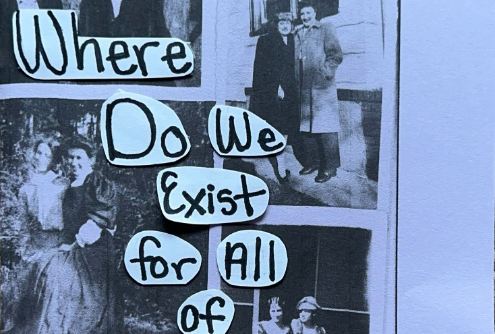 Where
Do We
Exist
for All
of